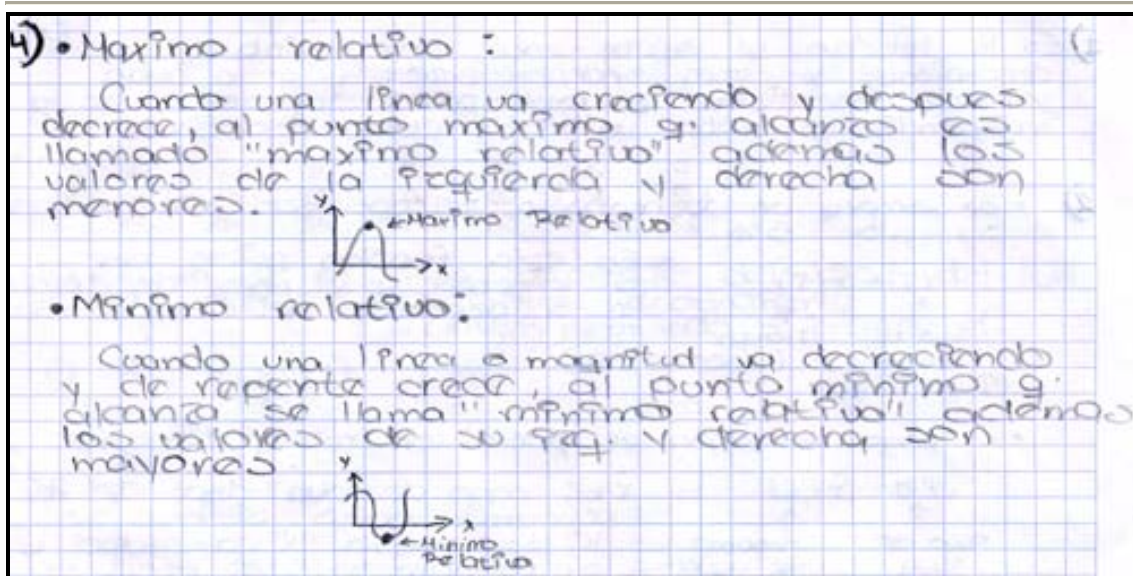 4) • Maximo relativo :
Cuando una linea va creciendo y despues
decrece, al punto maximo q. alcanza es
llamado "maximo relativo" además los
valores de la izquierda y derecha son
menores.
y
←Maximo Relativo
x
• Minimo relativo:
Cuando una linea o magnitud va decreciendo
y de repente crece, al punto minimo q.
alcanza se llama "minimo relativo" además
los valores de su izq. y derecha son
mayores
y
x
←Minimo
Relativo